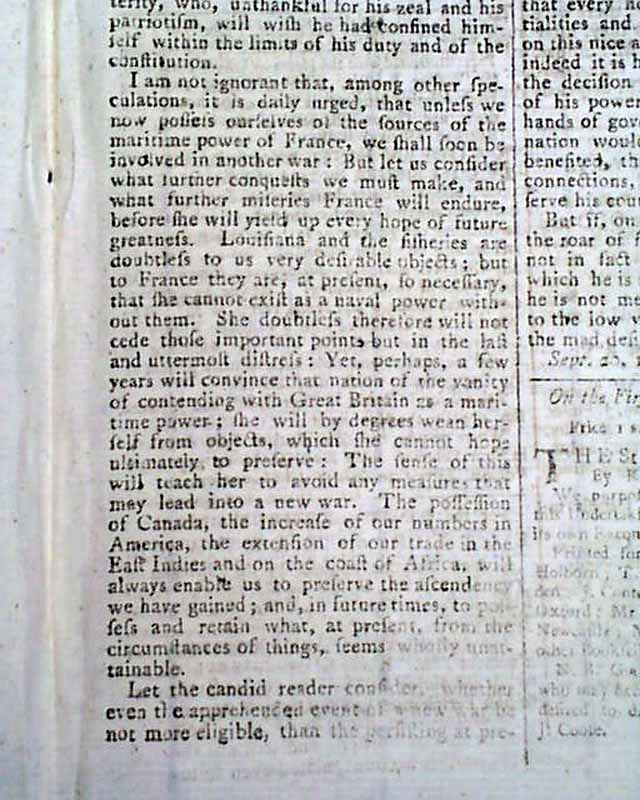 terity, who, unthankful for his zeal and his
patriotiſm, will wiſh he had confined him-
ſelf within the limits of his duty and of the
conſtitution.
I am not ignorant that, among other ſpe-
culations, it is daily urged, that unleſs we
now poſſeſs ourſelves of the ſources of the
maritime power of France, we ſhall ſoon be
involved in another war : But let us conſider
what further conqueſts we muſt make, and
what further miſeries France will endure,
before ſhe will yield up every hope of future
greatneſs. Louiſiana and the fiſheries are
doubtleſs to us very deſirable objects ; but
to France they are, at preſent, ſo neceſſary,
that ſhe cannot exiſt as a naval power with-
out them. She doubtleſs therefore will not
cede thoſe important points but in the laſt
and uttermoſt diſtreſs : Yet, perhaps, a few
years will convince that nation of the vanity
of contending with Great Britain as a mari-
time power ; ſhe will by degrees wean her-
ſelf from objects, which ſhe cannot hope
ultimately to preſerve : The ſenſe of this
will teach her to avoid any meaſures that
may lead into a new war. The poſſeſſion
of Canada, the increaſe of our numbers in
America, the extenſion of our trade in the
Eaſt Indies and on the coaſt of Africa, will
always enable us to preſerve the aſcendency
we have gained ; and, in future times, to poſ-
ſeſs and retain what, at preſent, from the
circumſtances of things, ſeems wholly unat-
tainable.
Let the candid reader conſider, whether
even the apprehended event of a new war be
not more eligible, than the perſiſting at pre-
that every
tialities and
on this nice a
indeed it is h
the deciſion
of his power
hands of gov
nation woul
benefited, th
connections,
ſerve his cou
But if, on
the roar of f
not in fact
which he is
he is not me
to the low v
the mad deſi
Sept. 20,
On the Fir
Price 1 s
THE St
By
We purpoſe
this Undertak
its own
Printed for
Holborn ; T.
den, J.
Oxford ; Mr.
Newcaſtle,
other Bookſell
N. B.
who may
deſired to
J. Coote.